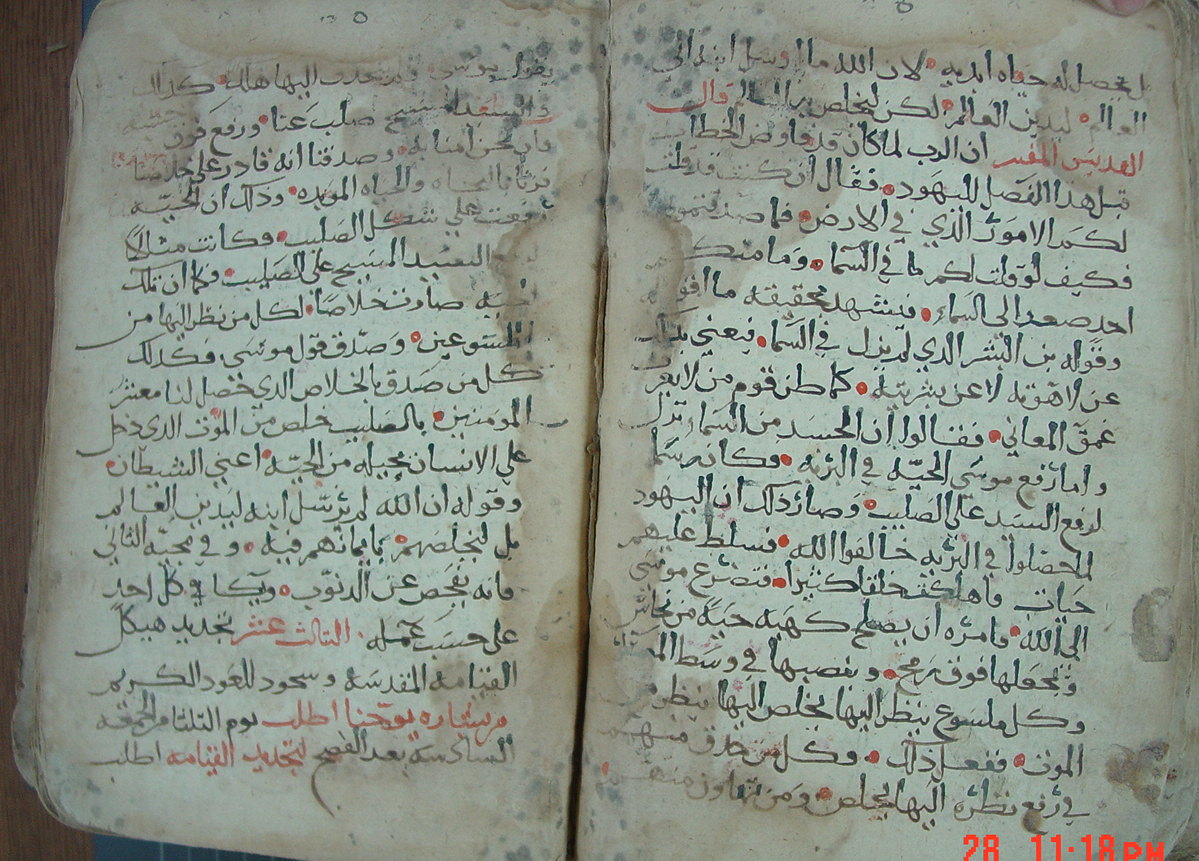 بل تحصل له حياه ابديه لان الله ما ارسل ابنه الى
العالم ليدين العالم لكن ليخلص به العالم قال
القديس المفسر ان الرب لما كان قد فاوض الخطاب
قبل هذا الفصل لليهود فقال ان كنت قد قلت
لكم الامور الذي في الارض فما صدقتموه
فكيف لو قلت لكم ما في السما وما منكم
احد صعد الى السماء فيشهد بحقيقه ما اقوله
وقوله بن البشر الذي لم يزل في السما فيعني بذلك
عن لاهوته لا عن بشريته كما ظن قوم من لا يعرف
عمق المعاني فقالوا ان الجسد من السماء نزل
واما رفع موسى الحيه في البريه وكان رسما
لرفع السيد على الصليب وصار ذلك ان اليهود
لما حصلوا في البريه خالفوا الله فسلط عليهم
حيات فاهلكت خلقا كثيرا فتضرع موسى
الى الله فامره ان يصلح كهية حية من نحاس
ويجعلها فوق رمح وينصبها في وسط
وكل ملسوع ينظر اليها يخلص اليها ينظر من
الموت ففعل ذلك وكل من حدق منهم
في رفع نظره اليها يخلص ومن تهاون منهم
يقول موسى ولم يحدق اليها هلك كذلك
والسيد المسيح صلب عنا ورفع فوق
فان نحن امنا به وصدقنا انه قادر على خلاصنا
فزنا بالنجاه والحياه الموبده وذلك ان الحيه
رفعت على شكل الصليب وكانت مثالا
السيد المسيح على الصليب فكما ان تلك
الحيه صارت خلاصا لكل من نظر اليها من
الملسوعين وصدق قول موسى فكدلك
كل من صدق بالخلاص الدي حصل لنا معشر
المومنين بالصليب خلص من الموت الدي دخل
على الانسان بحيله من الحيه اعني الشيطان
وقوله ان الله لم يرسل ابنه ليدين العالم
بل ليخلصهم بايمانهم فيه وفي مجيه الثاني
فانه يفحص عن الدنوب ويكافي كل احد
على حسب عمله الثالث عشر تجديد هيكل
القيامه المقدسه وسجود للعود الكريم
من بشاره يوحنا اطلب يوم الثلثا من الجمعه
السادسه بعد الفصح لتجديد القيامه اطلب